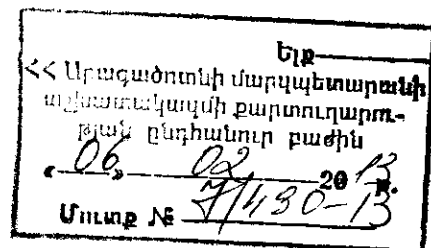 Ելք
<< Արագածոտնի մարզպետարանի
աշխատակազմի քարտուղարու-
թյան ընդհանուր բաժին
«06» 02 2013 թ.
Մուտք № 7/430-13